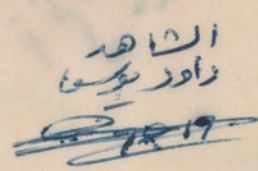 الشاهد
داود يوسف